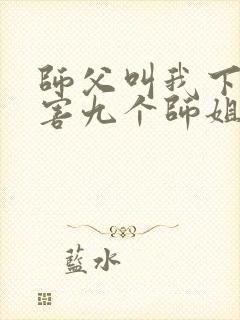 師父叫我下
害九个師姐
藍水